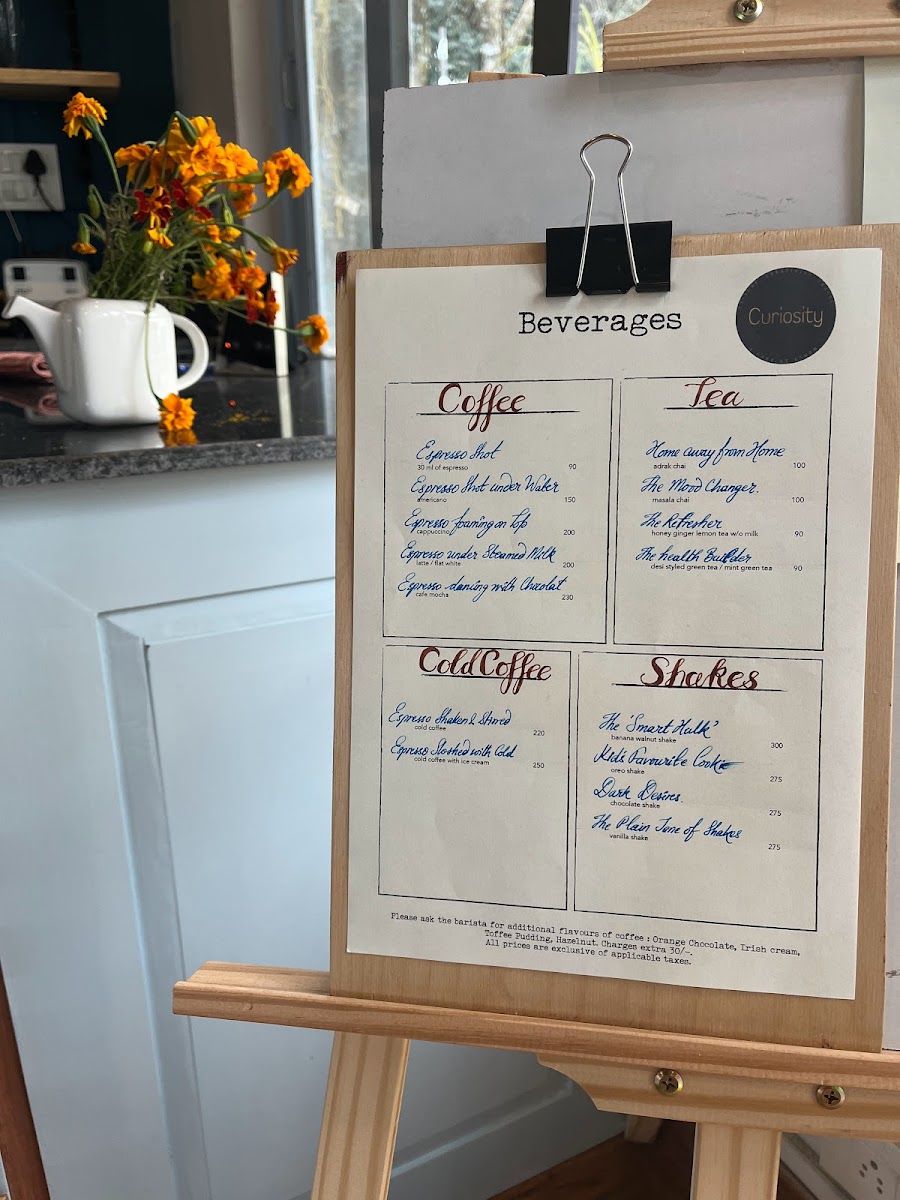 Beverages
Curiosity
Coffee
Espresso Shot
30 ml of espresso 90
Espresso Shot under Water
americano 150
Espresso foaming on Top
cappuccino 200
Espresso under Steamed Milk
latte / flat white 200
Espresso dancing with Chocolat
cafe mocha 230
Tea
Home away from Home
adrak chai 100
The Mood Changer.
masala chai 100
The Refresher
honey ginger lemon tea w/o milk 90
The health Builder
desi styled green tea / mint green tea 90
Cold Coffee
Espresso Shaken & Stirred
cold coffee 220
Espresso Sloshed with Cold
cold coffee with ice cream 250
Shakes
The 'Smart Hulk'
banana walnut shake 300
Kid's Favourite Cookie
oreo shake 275
Dark Desires.
chocolate shake 275
The Plain Jane of Shakes
vanilla shake 275
Please ask the barista for additional flavours of coffee : Orange Chocolate, Irish cream,
Toffee Pudding, Hazelnut. Charges extra 30/-.
All prices are exclusive of applicable taxes.